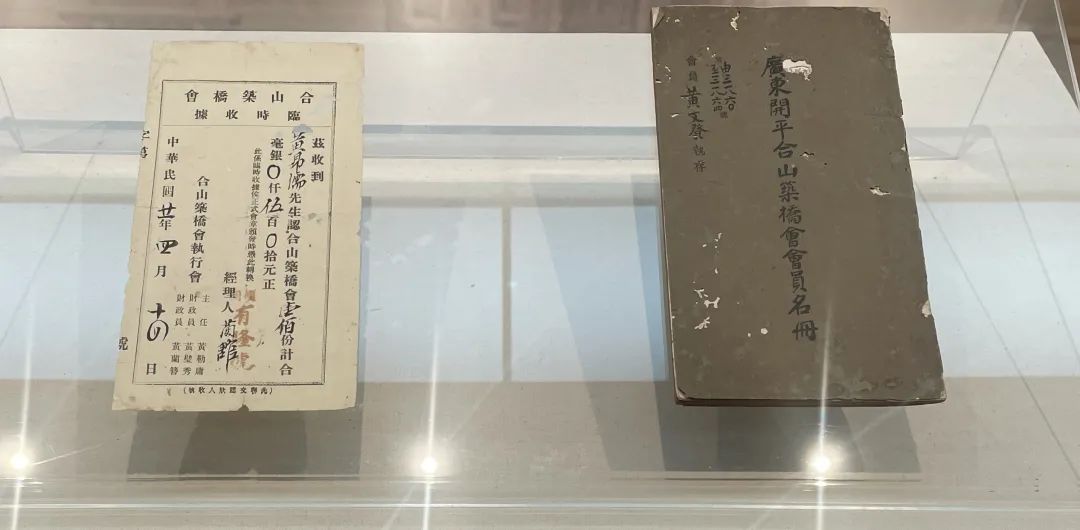 合山築橋會
臨時收據
茲收到
黃昂濡先生認合山築橋會壹佰份計合
毫銀〇仟伍百〇拾元正
此係臨時收據俟正式會章頒發時憑此轉換
經理人
有隆號
合山築橋會執行會
主任 黃勒庸
財政員 黃璧秀
財政員 黃蘭簪
中華民國廿年四月十四日
字第
號
廣東開平合山築橋會會員名冊
由三八六〇
至三八六四號
會員黃文聲執存